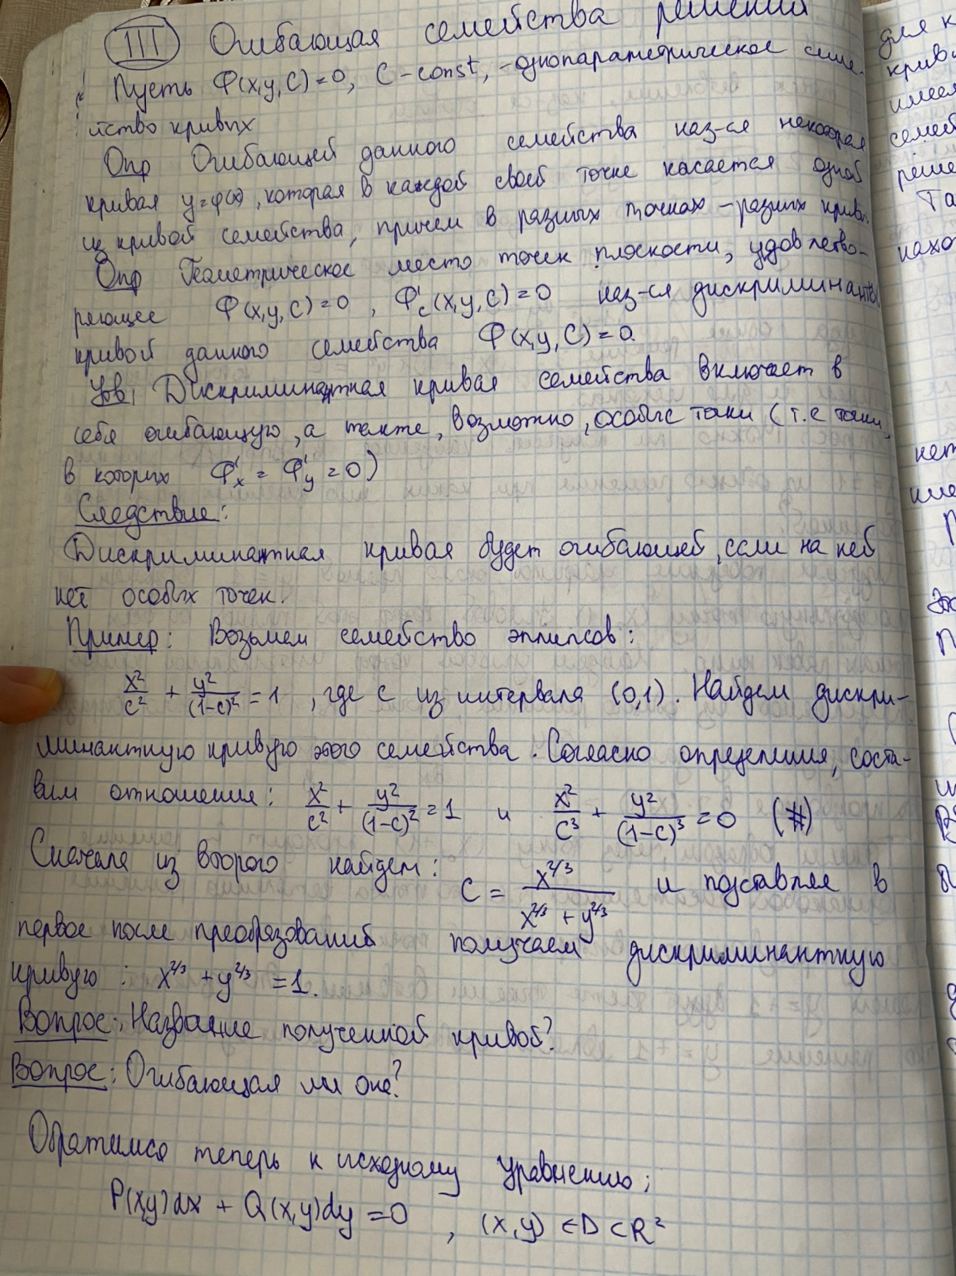 III Огибающая семейства решений
Пусть Φ(x,y,C)=0, C-const, -однопараметрическое семе-
йство кривых
Опр Огибающей данного семейства наз-ся некоторая
кривая y=φ(x), которая в каждой своей точке касается одной
из кривой семейства, причем в разных точках - разных кривых
Опр Геометрическое место точек плоскости, удовлетво-
ряющее Φ(x,y,C)=0, Φ'c(x,y,C)=0 наз-ся дискриминантной
кривой данного семейства Φ(x,y,C)=0.
Утв, Дискриминантная кривая семейства включает в
себя огибающую, а также, возможно, особые точки (т.е точки,
в которых Φ'x = Φ'y = 0)
Следствие:
Дискриминантная кривая будет огибающей, если на ней
нет особых точек.
Пример: Возьмем семейство эллипсов:
x²/c² + y²/(1-c)² = 1, где c из интервала (0,1). Найдем дискри-
минантную кривую этого семейства. Согласно определения, соста-
вим отношения: x²/c² + y²/(1-c)² = 1 и x²/c³ + y²/(1-c)³ = 0 (#)
Сначала из второго найдем: C = x^2/3 / (x^2/3 + y^2/3) и подставляя в
первое после преобразований получаем дискриминантную
кривую: x^2/3 + y^2/3 = 1.
Вопрос: Название полученной кривой?
Вопрос: Огибающая ли она?
Обратимся теперь к исходному уравнению:
P(x,y)dx + Q(x,y)dy = 0, (x,y) ∈ D ⊂ R²
для к
криво
имее
семей
реше
Та
нахо
нет